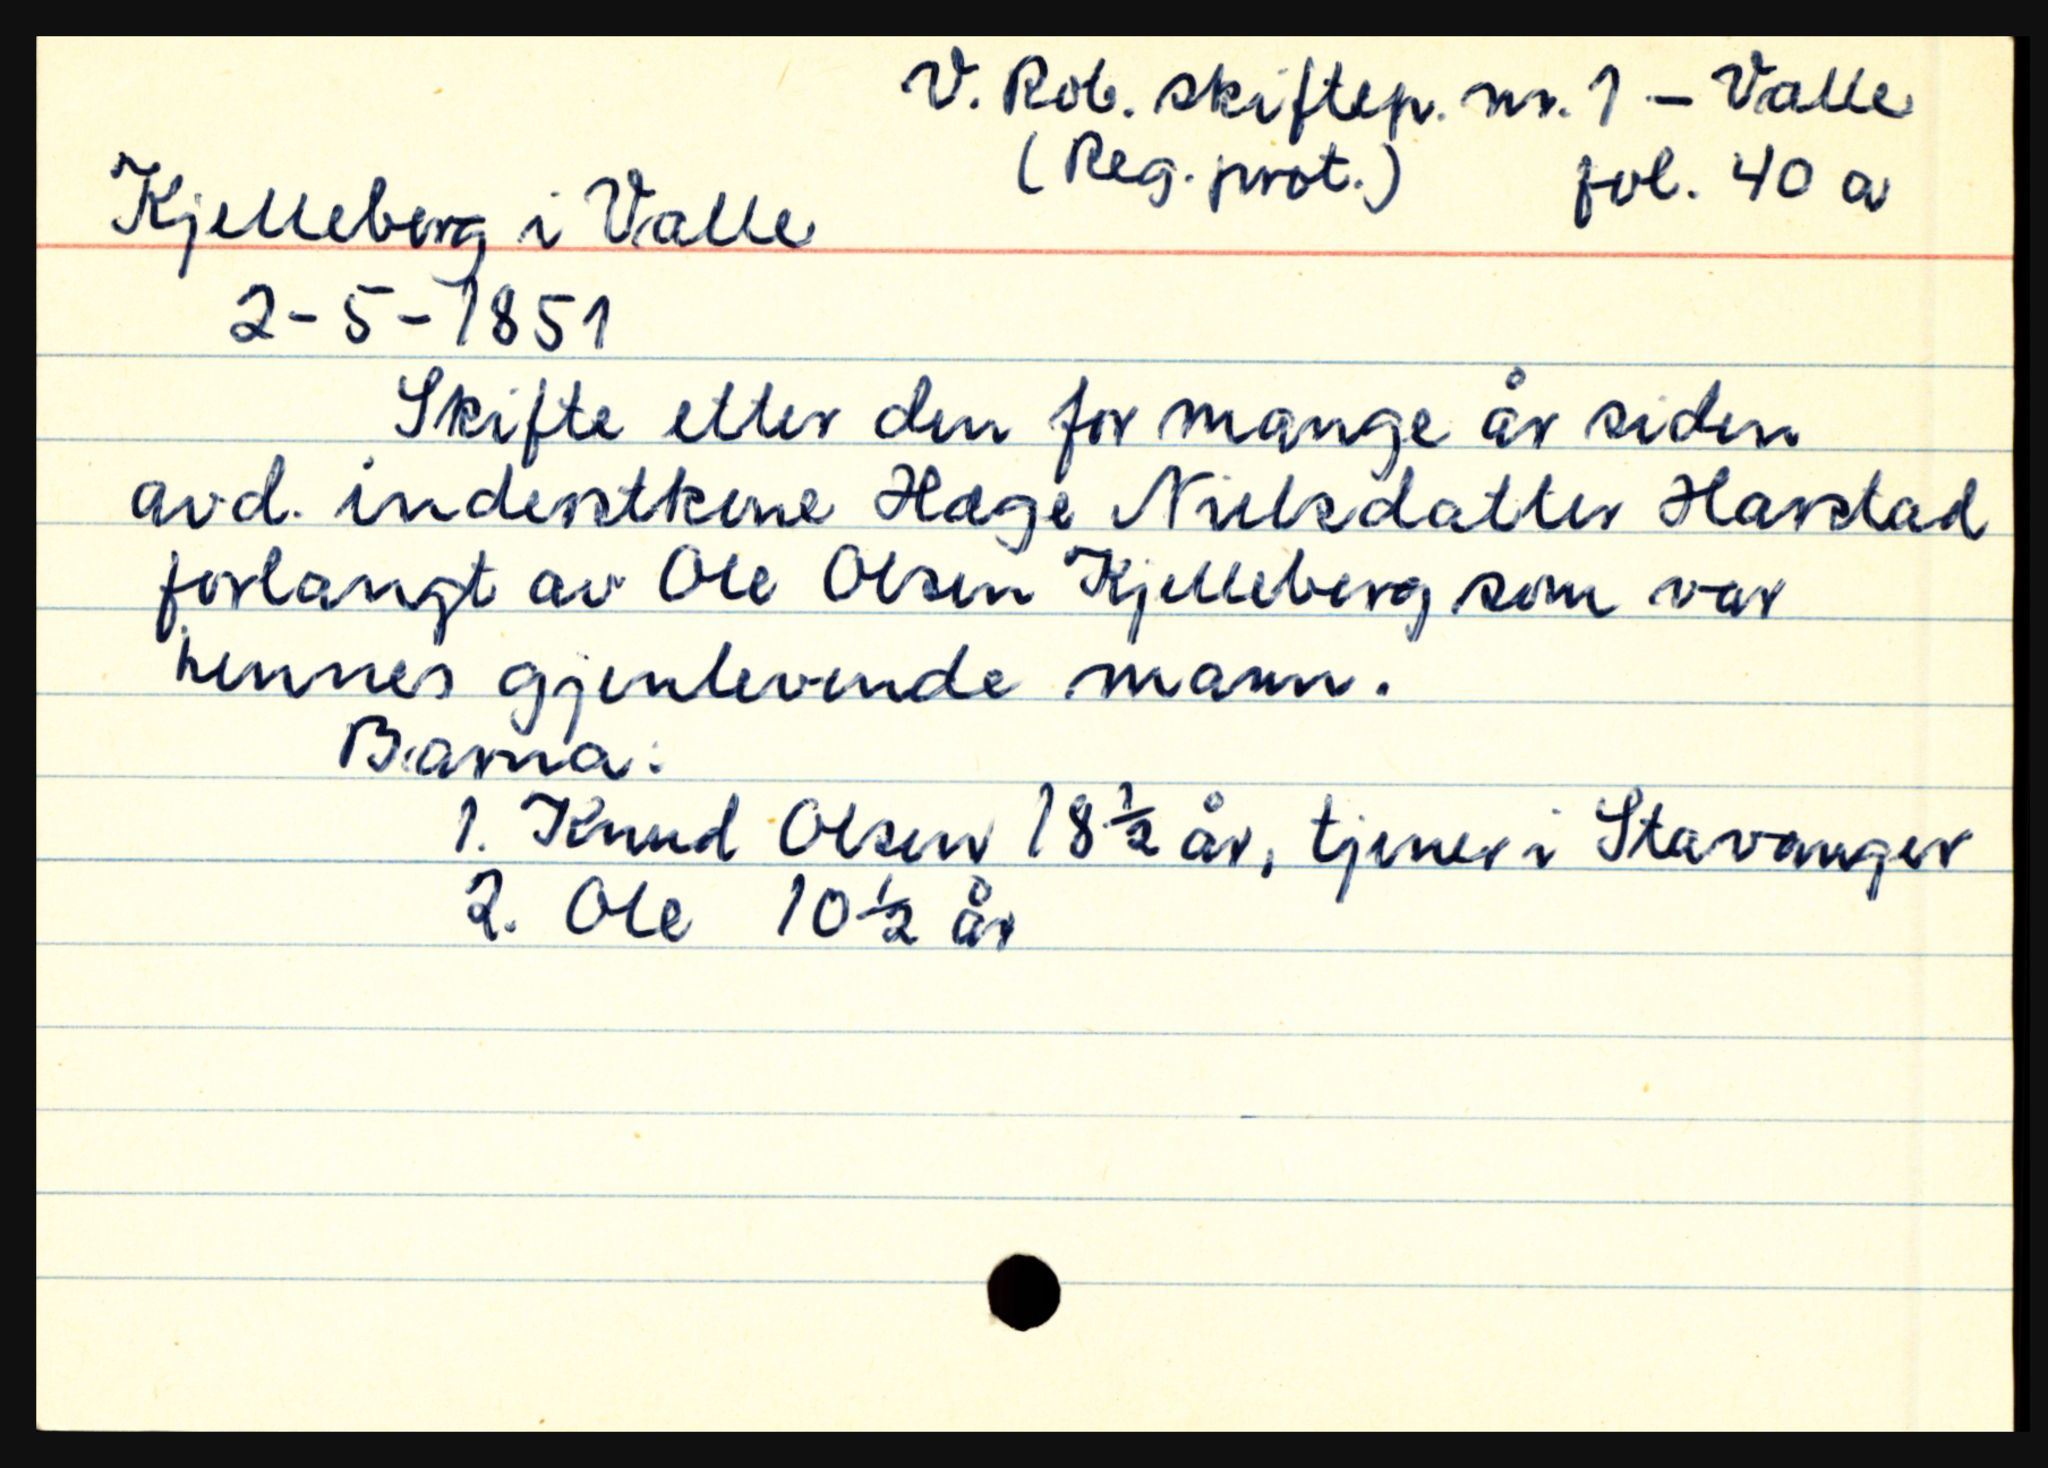 V. Rob. skiftep. nr. 1 - Valle
(Reg. prot.) fol. 40 a
Kjelleberg i Valle
2-5-1851
Skifte etter den for mange år siden
avd. inderstkone Hæge Nielsdatter Harstad
forlangt av Ole Olsen Kjelleberg som var
hennes gjenlevende mann.
Barna:
1. Knud Olsen 18 ½ år, tjener i Stavanger
2. Ole 10 ½ år